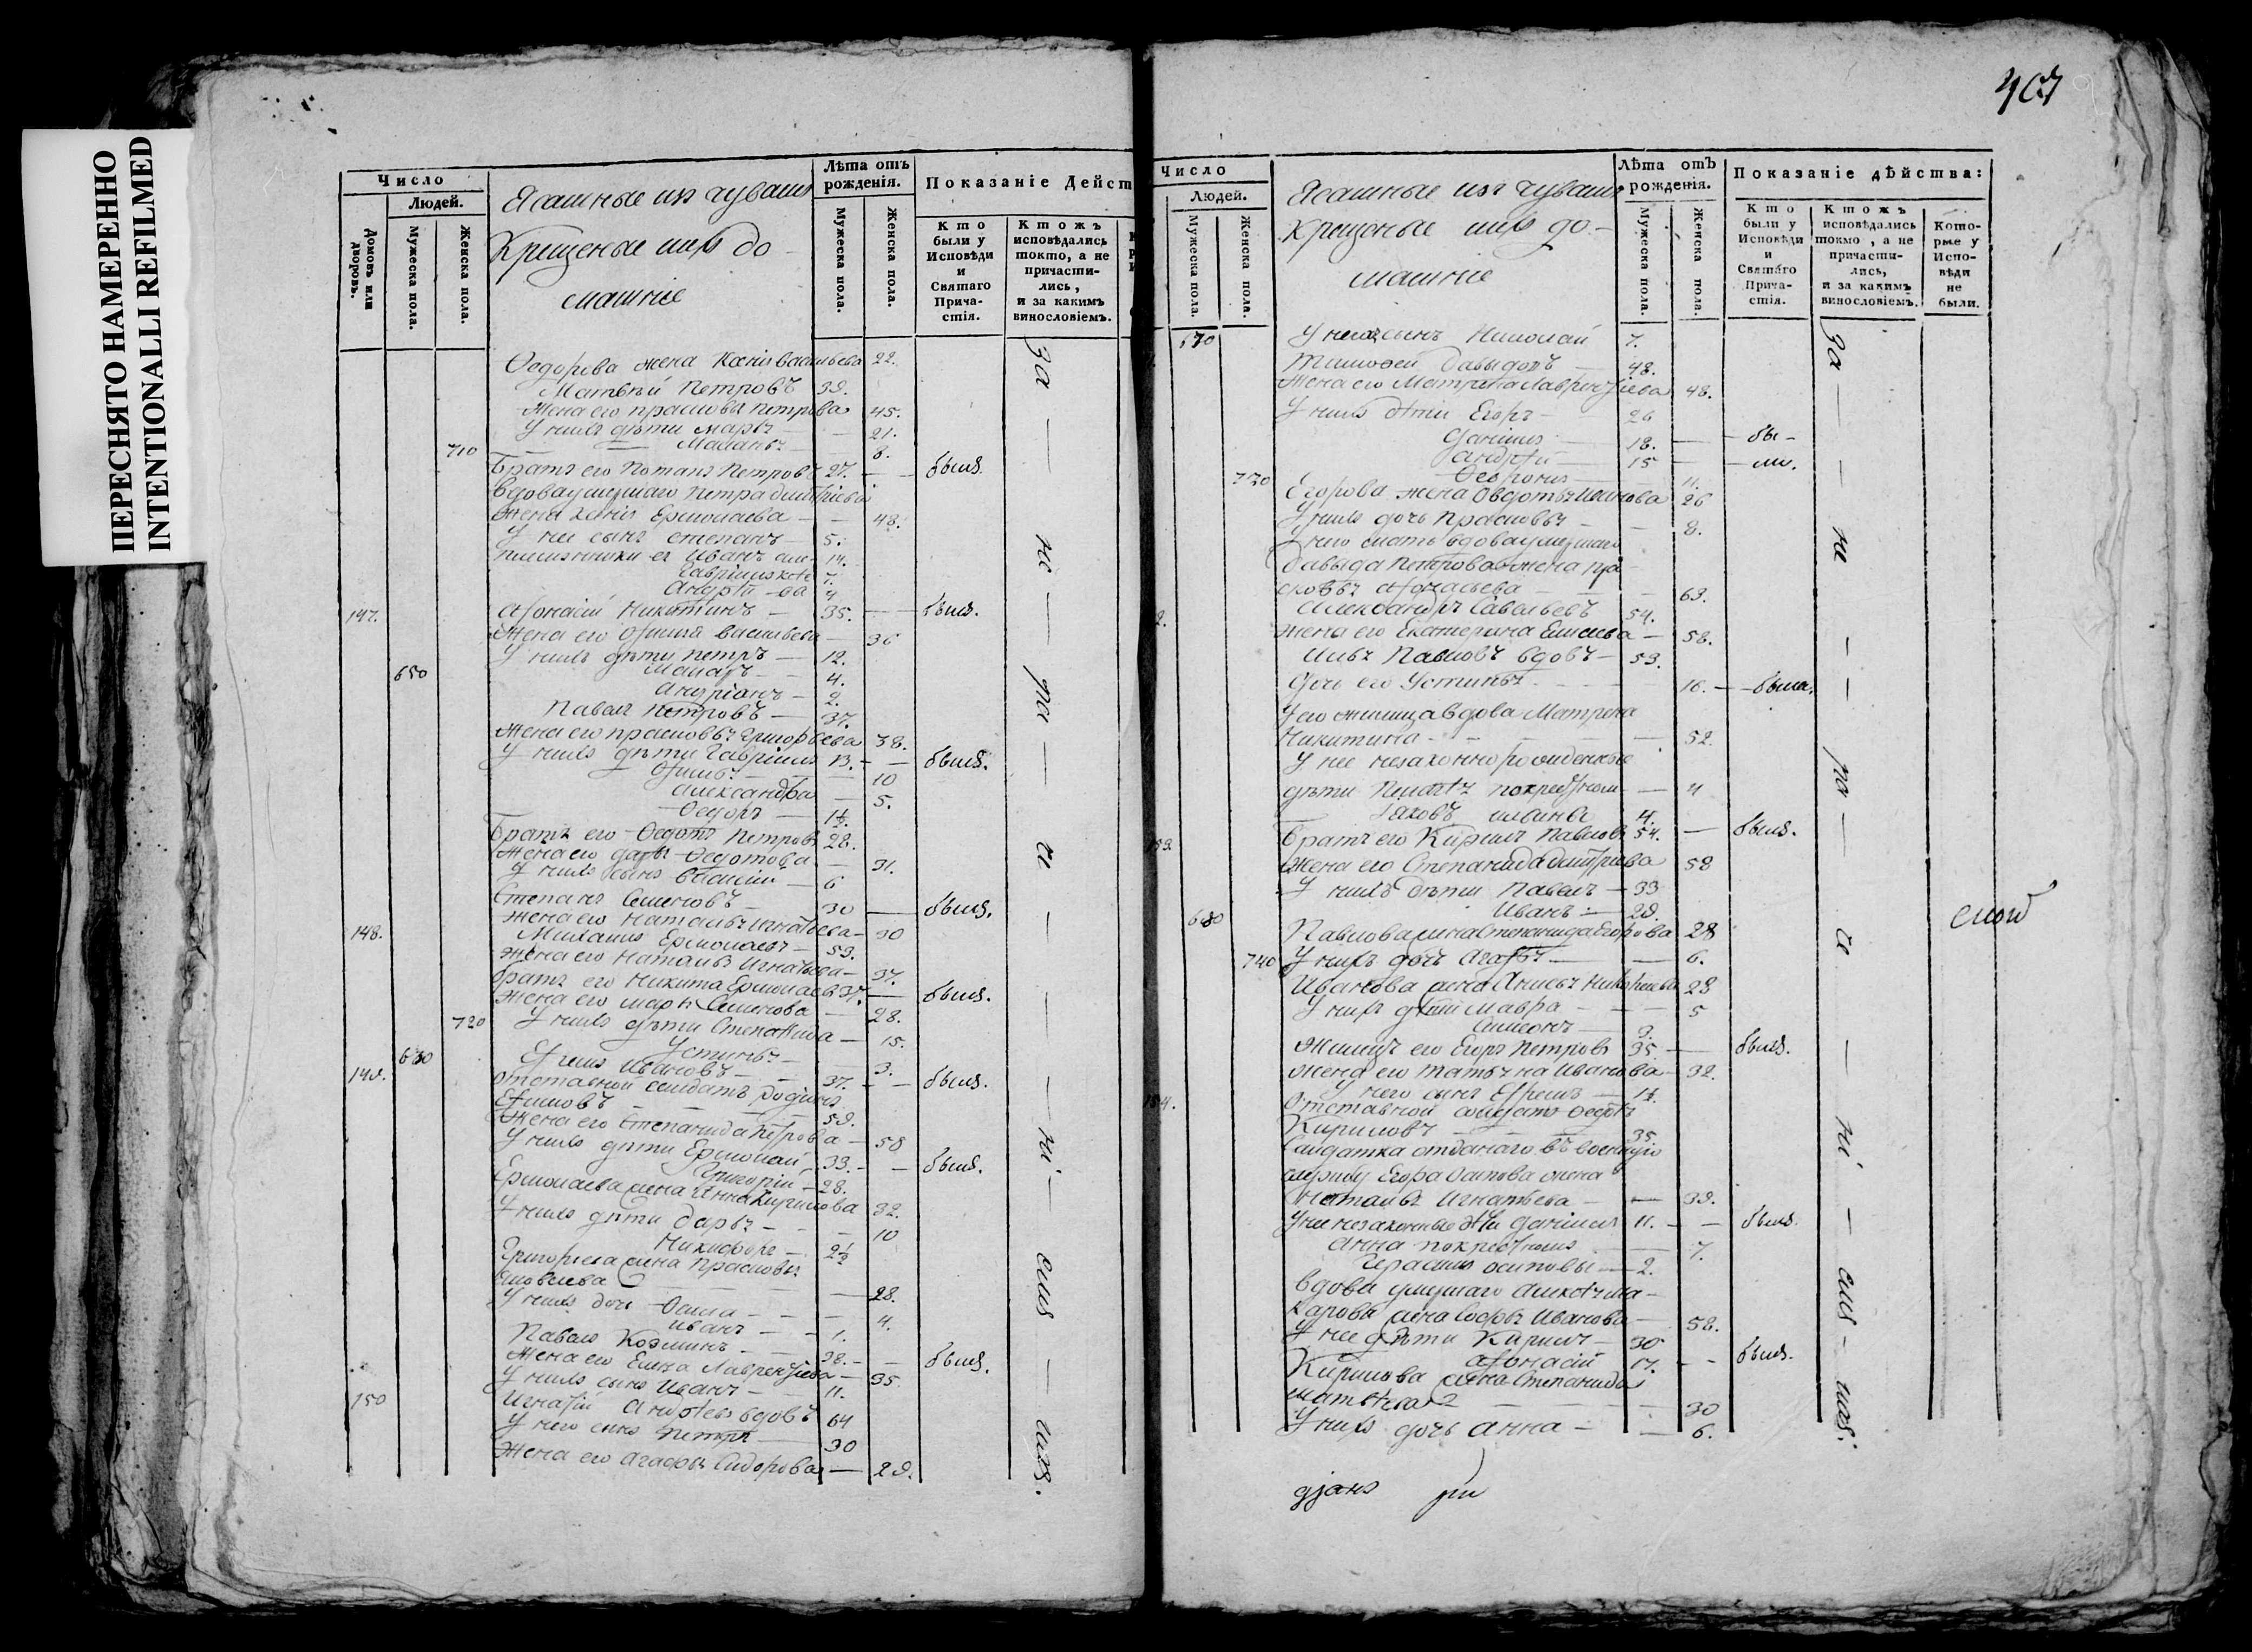 ПЕРЕСНЯТО НАМЕРЕННО
INTENTIONALLI REFILMED
Число
Людей.
Домовъ или дворовъ.
Мужеска пола.
Женска пола.
Ясашные изъ чувашъ
Крещеные ихъ до
машніе
Лѣта отъ
рожденія.
Мужеска пола.
Женска пола.
Показаніе Дейст
Кто
были у
Исповѣди
и
Святаго
Прича-
стія.
Ктожъ
исповѣдались
токмо, а не
причасти-
лись,
и за какимъ
винословіемъ.
Ѳедорова жена Ксенія Васильева 22.
Матвѣй Петровъ 39.
Жена его Прасковья Петрова 45.
У нихъ дѣти Марья 21.
710 Маланья 8.
Братъ его Потапъ Петровъ 27. былъ.
Вдова умершаго Петра Дмитріева
жена Ксенія Ермолаева 48.
У нее сынъ Степанъ 5.
племянники ея Иванъ 14.
Гавріилъ 7.
Андрей 4
147. Афонасій Никитинъ 35. былъ.
Жена его Офимія Васильева 36
У нихъ дѣти Петръ 12.
650 Макаръ 4.
Андріанъ 2.
Павелъ Петровъ 37.
Жена его Прасковья Григорьева 38.
У нихъ дѣти Гавріилъ 13. былъ.
Офимья 10
Александра 5.
Ѳедоръ 1½.
Братъ его Ѳедотъ Петровъ 28.
Жена его Дарья Ѳедотова 31.
У нихъ сынъ Василій 6
Степанъ Семеновъ 30 былъ.
Жена его Наталья Игнатьева 30
148. Михаилъ Ермолаевъ 59.
Жена его Наталья Игнатьева 37.
Братъ его Никита Ермолаевъ 37. былъ.
Жена его Марья Семенова 28.
720 У нихъ дѣти Степанида 15.
660 Устинья 3.
149. Ефремъ Ивановъ 37. былъ.
Отставной солдатъ Родіонъ
Ефимовъ 59.
Жена его Степанида Петрова 58
У нихъ дѣти Ермолай 33. былъ.
Григорій 28.
Ермолаева жена Анна Кирилова 32.
У нихъ дѣти Дарья 10
Никифоръ 2½
Григорьева жена Прасковья
Яковлева 28.
У нихъ дочь Ѳекла 4.
Иванъ 1.
Павелъ Козминъ 38. былъ.
Жена его Елена Лаврентьева 35.
У нихъ сынъ Иванъ 11.
150 Игнатій Андреевъ вдовъ 64
У него сынъ Петръ 30
Жена его Агафья Сидорова 29.
за — не — ра — че — ні — емъ — ихъ.
Число
Людей.
Мужеска пола.
Женска пола.
Ясашные изъ чувашъ
Крещеные ихъ до-
машніе
Лѣта отъ
рожденія.
Мужеска пола.
Женска пола.
Показаніе дѣйства:
Кто
были у
Исповѣди
и
Святаго
Прича-
стія.
Ктожъ
исповѣдались
токмо, а не
причасти-
лись,
и за какимъ
винословіемъ.
Кото-
рые у
Испо-
вѣди
не
были.
670 У нихъ сынъ Николай 7.
Тимофей Давыдовъ 48.
Жена его Матрена Лаврентьева 48.
У нихъ дѣти Егоръ 26
Даніилъ 18. бы-
Андрей 15 ли.
730 Ѳевронья 11.
Егорова жена Овдотья Иванова 26
У нихъ дочь Прасковья 8.
У него мать вдова умершаго
Давыда Петрова жена Пра
сковья Афонасьева 63.
2. Александръ Савельевъ 54.
Жена его Екатерина Елисеева 58.
Илья Павловъ вдовъ 59.
Дочь его Устинья 16. была.
У его жилица вдова Матрена
Никитина 52.
У нее незаконнорожденные
дѣти Пелагея 4
Яковъ Ильины 4.
Братъ его Кирилъ Павловъ 54. былъ.
Жена его Степанида Дмитріева 58
У нихъ дѣти Павелъ 33
680 Иванъ 29.
Павлова жена Степанида Егорова 28
740 У нихъ дочь Агафья 6.
Иванова жена Анисья Никифорова 28
У нихъ дѣти Мавра 5
Симеонъ 3.
Жилецъ его Егоръ Петровъ 35. былъ.
Жена его Татьяна Иванова 32.
У него сынъ Ефремъ 1½.
154. Отставной солдатъ Ѳедотъ
Кириловъ 35.
Солдатка отданаго въ военную
службу Егора Осипова жена
Наталья Игнатьева 39.
У нее незаконные дѣти Даніилъ 11. былъ.
Анна 7.
Герасимъ Осиповы 2.
Вдова умершаго Алексѣя Ма-
карова жена Софья Иванова 58.
У нее дѣти Кирилъ 30
Афонасій 17. былъ.
Кирилова жена Степанида
Матвѣева 30
У нихъ дочь Анна 6.
за — не — ра — че — ні — емъ — ихъ.